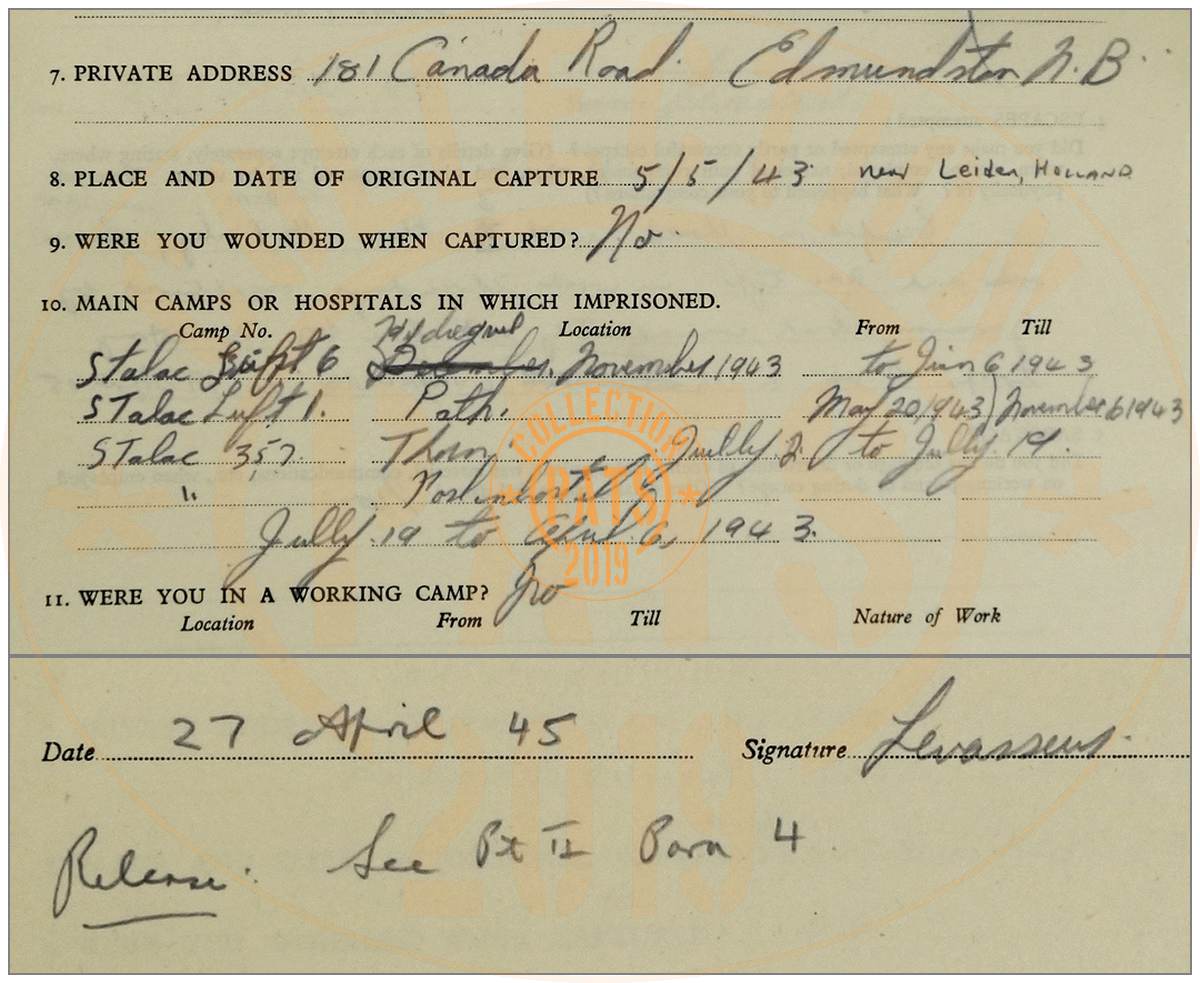 7. PRIVATE ADDRESS 181 Canada Road. Edmundston N.B.
8. PLACE AND DATE OF ORIGINAL CAPTURE 5/5/43 near Leiden, HOLLAND
9. WERE YOU WOUNDED WHEN CAPTURED? No.
10. MAIN CAMPS OR HOSPITALS IN WHICH IMPRISONED.
Camp No. Location From Till
Stalac Luft 6 November 1943 to Jun 6 1943
STalac Luft 1. Path. May 20, 1943 November 6 1943
STalac 357. Thorn. Jully 2. to Jully. 19.
".
Jully. 19 to April 6, 1943.
11. WERE YOU IN A WORKING CAMP? No
Location From Till Nature of Work
Date 27 April 45 Signature Levasseur.
Release: See Pt II Para 4
COLLECTION
PATS
2019